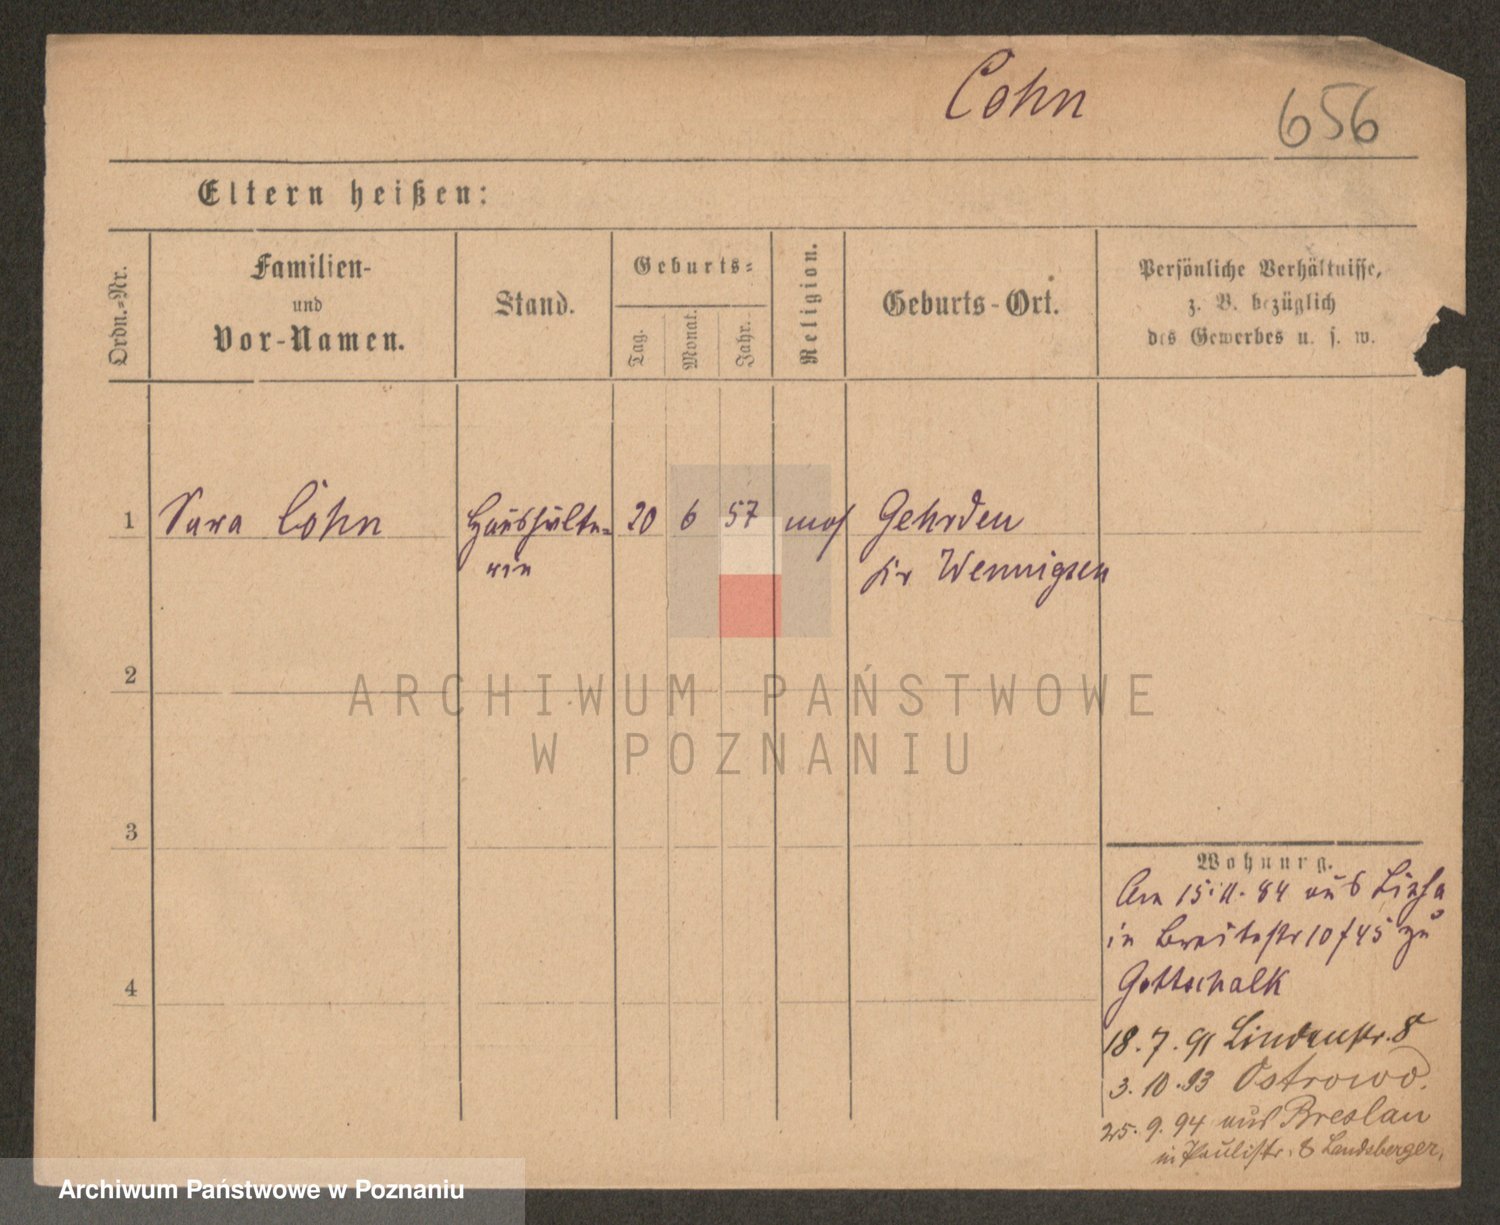 Cohn
656
Eltern heißen:
Ordn.-Nr.
Familien-
und
Vor-Namen.
Stand.
Geburts-
Tag.
Monat.
Jahr.
Religion.
Geburts-Ort.
Persönliche Verhältnisse,
z. B. bezüglich
des Gewerbes u. s. w.
1 Sara Cohn Haushälte- 20 6 57 mos Gehrden
rin Wennigsen
2
ARCHIWUM PAŃSTWOWE
W POZNANIU
3
Wohnung.
Am 15.11.84 aus Lissa
in Breitestr 10 f 45 zu
4
Gottschalk
18.7.91 Lindenstr. 8
3.10.93 Ostrowo.
25.9.94 aus Breslau
in Paulistr. 8 Landsberger.
Archiwum Państwowe w Poznaniu